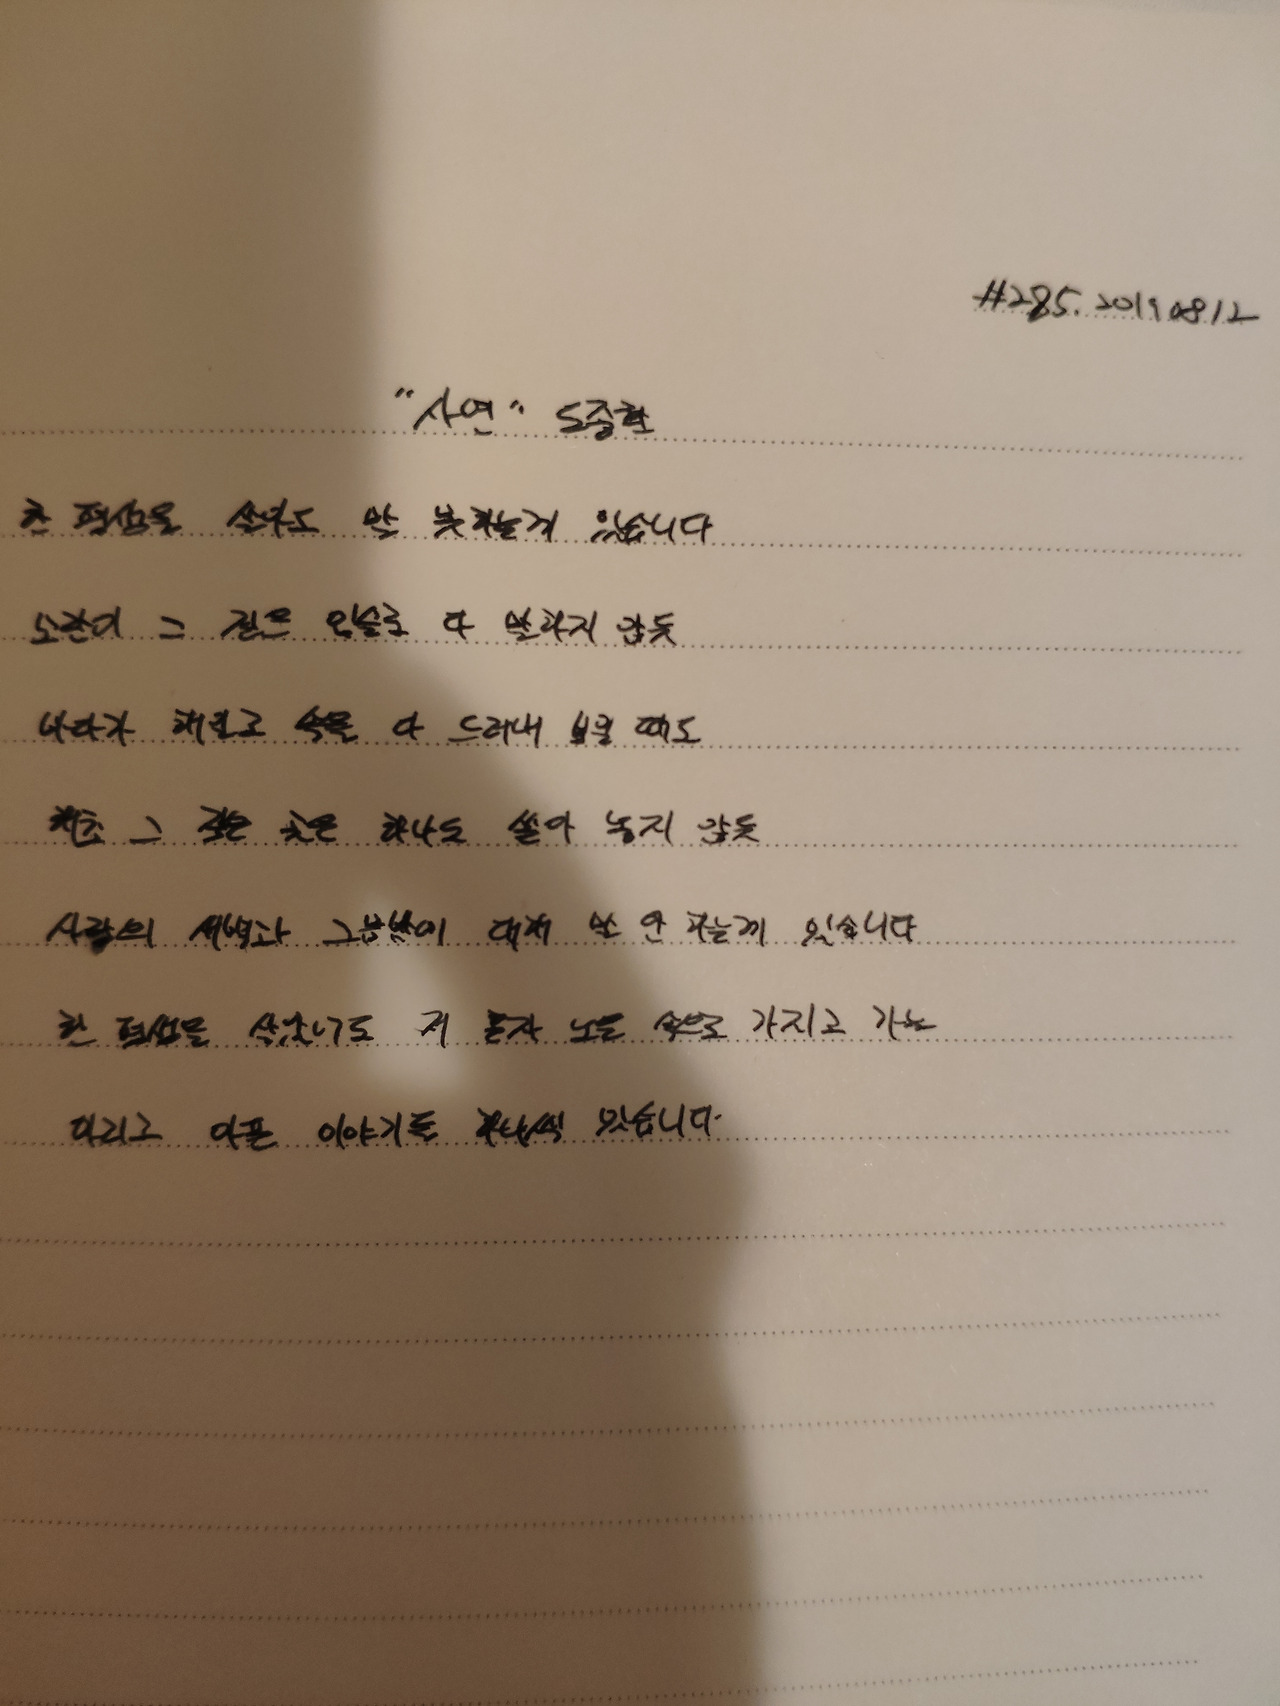 #285. 20190812
"사연" 도종환
한 평생을 살아도 말 못하는게 있습니다
모란이 그 짙은 입술로 다 말하지 않듯
바다가 해일로 속을 다 드러내 보일 때도
해초 그 깊은 곳은 하나도 쏟아 놓지 않듯
사랑의 새벽과 그믐밤에 대해 말 안 하는게 있습니다
한 평생을 살았어도 저 혼자 노을 속으로 가지고 가는
아리고 아픈 이야기들 하나씩 있습니다.